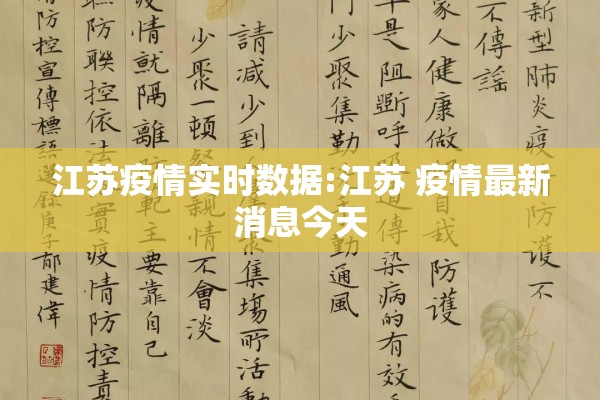 江苏疫情实时数据:江苏 疫情最新
消息今天
新型肺炎疫 防護不
不傳謠
家人健康做 自我防護
罩是阻斷呼 道傳染病的有效
門少聚集勤 手勤通風
請減少到 集場所活動
少聚一頓 親情不會淡
疫情就隔離防範主要靠自己
防聯控依法 實疫情防控責
情防控宣傳標語選錄庚子郁建偉